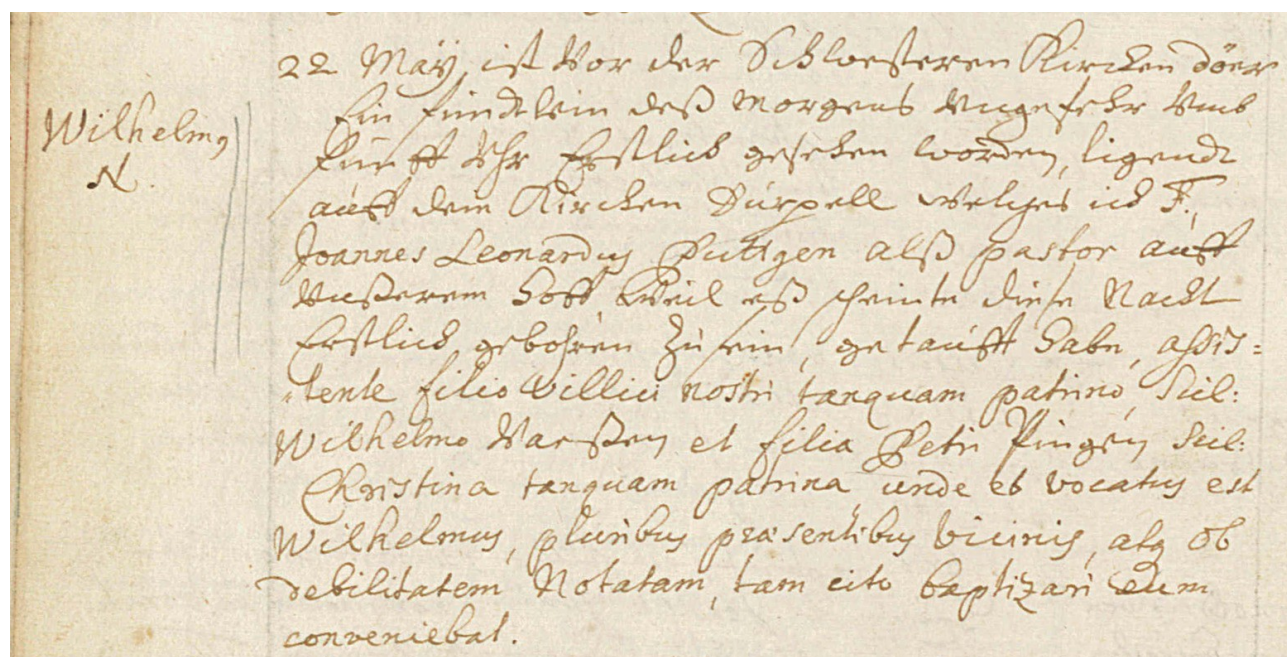 Wilhelmus
N.
22 Maÿ, ist vor der Schwesteren Kircken döer
Ein fündtlein deß Morgens ungefehr umb
fünff Uhr Erstlich gesehen worden, ligendt
auff dem Kircken Dürpell welches ich F.
Joannes Leonardus Püttgen alß pastor auff
unßerem Hoff weil eß scheinte diese Nacht
Erstlich gebohren zu sein, getaufft habe, assis=
tente filio villici nostri tanquam patrino, scil:
Wilhelmo Varßen et filia Petri Pingen scil:
Christina tanquam patrina unde et vocatus est
Wilhelmus, pluribus præsentibus vicinis, atq ob
debilitatem Notatam, tam cito baptizari eum
conveniebat.